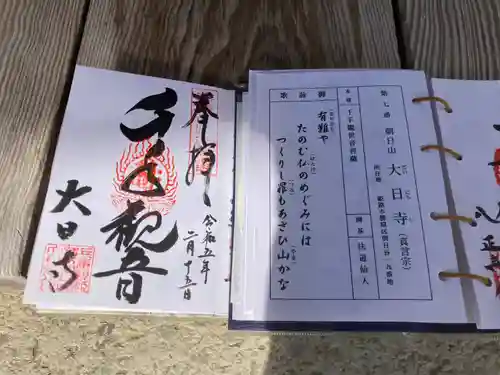 奉拝
令和五年
二月十五日
千手観音
大日寺
第七番 朝日山 大日寺（真言宗）
本尊 千手観世音菩薩
開基 法道仙人
御詠歌
有難や
たのむ仏のめぐみには
つくりし罪もあさひ山かな